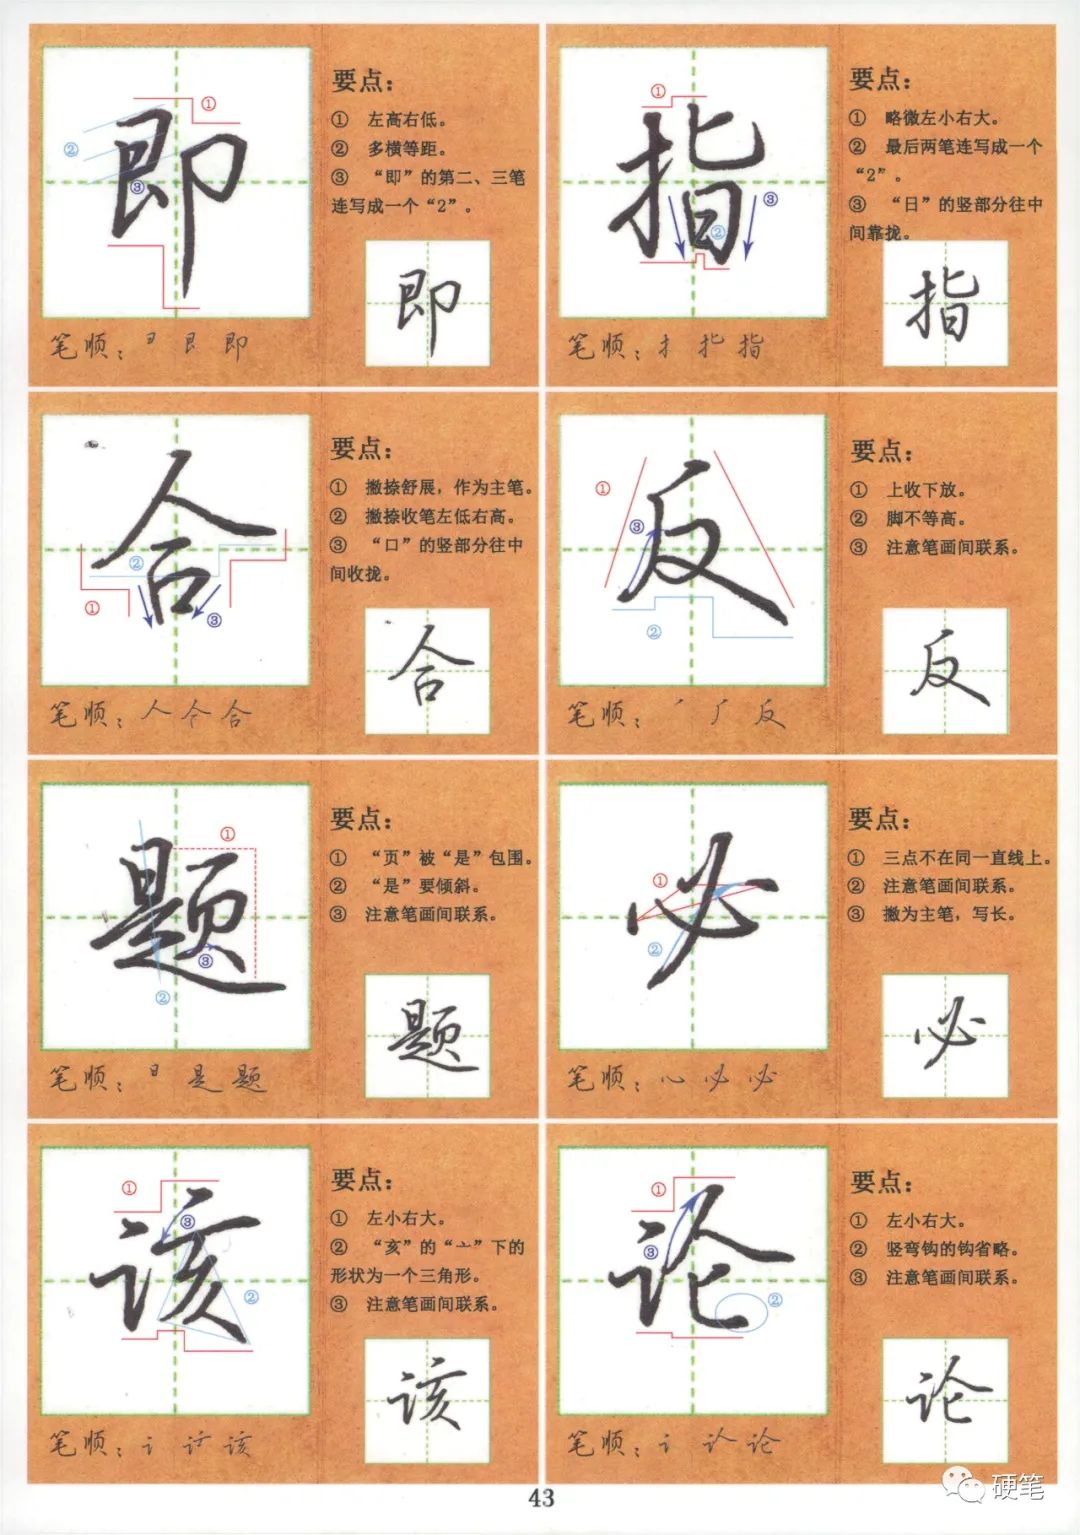 即
①
②
③
要点：
① 左高右低。
② 多横等距。
③ “即”的第二、三笔
连写成一个“2”。
即
笔顺：彐 艮 即
指
①
②
③
要点：
① 略微左小右大。
② 最后两笔连写成一个
“2”。
③ “日”的竖部分往中
间靠拢。
指
笔顺：扌 指
合
①
②
①
③
要点：
① 撇捺舒展，作为主笔。
② 撇捺收笔左低右高。
③ “口”的竖部分往中
间收拢。
合
笔顺：人 仒 合
反
①
③
②
要点：
① 上收下放。
② 脚不等高。
③ 注意笔画间联系。
反
笔顺：厂 反
题
①
③
②
要点：
① “页”被“是”包围。
② “是”要倾斜。
③ 注意笔画间联系。
题
笔顺：日 是 题
必
①
②
要点：
① 三点不在同一直线上。
② 注意笔画间联系。
③ 撇为主笔，写长。
必
笔顺：心 必 必
该
①
③
②
要点：
① 左小右大。
② “亥”的“亠”下的
形状为一个三角形。
③ 注意笔画间联系。
该
笔顺：讠 该
论
①
③
②
要点：
① 左小右大。
② 竖弯钩的钩省略。
③ 注意笔画间联系。
论
笔顺：讠 论
43
硬笔